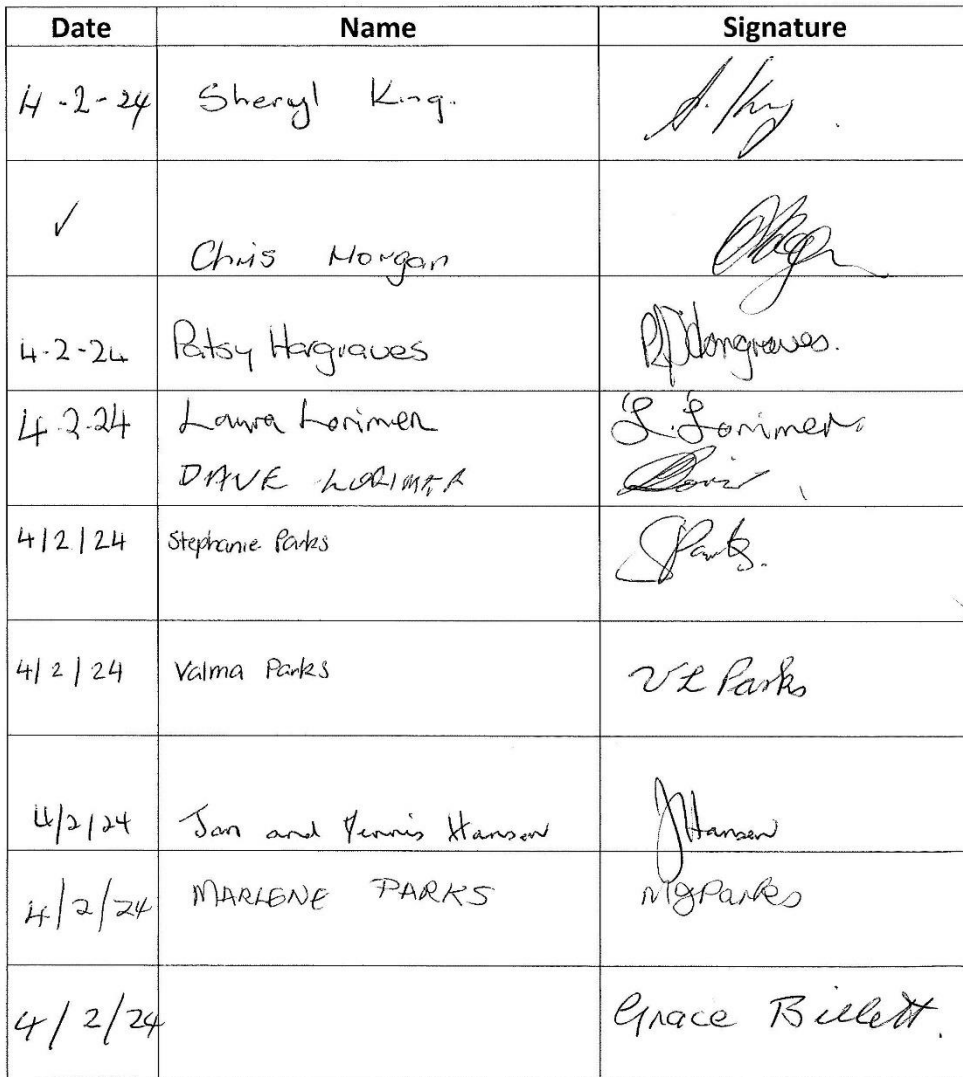 Date Name Signature
4-2-24 Sheryl King. S. King.
✓ Chris Morgan
4-2-24 Patsy Hargraves Hargraves.
4.2.24 Laura Lorimer L. Lorimer.
DAVE LORIMER
4/2/24 Stephanie Parks SParks.
4/2/24 Valma Parks VL Parks
4/2/24 Jan and Dennis Hansen J Hansen
4/2/24 MARLENE PARKS MgParks
4/2/24 Grace Billett.